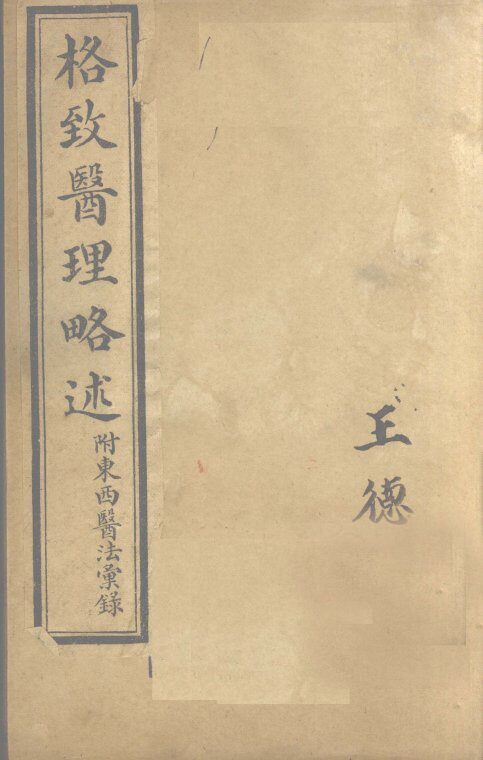 王德
格致醫理略述
附東西醫法彙錄